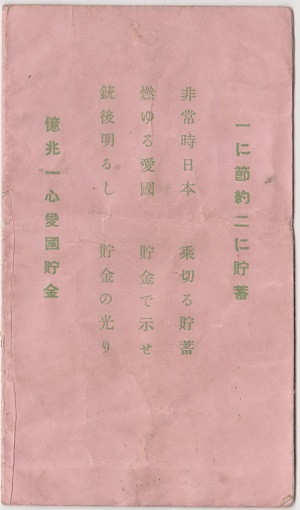 一に節約二に貯蓄
非常時日本 乗切る貯蓄
燃ゆる愛國 貯金で示せ
銃後明るし 貯金の光り
億兆一心愛國貯金